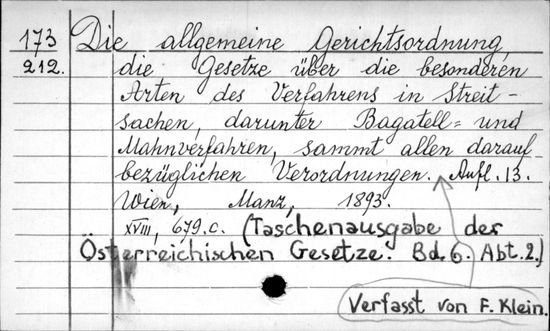 173 Die allgemeine Gerichtsordnung,
212. die Gesetze über die besonderen
Arten des Verfahrens in Streit-
sachen, darunter Bagatell= und
Mahnverfahren, sammt allen darauf
bezüglichen Verordnungen. Aufl. 13.
Wien, Manz, 1893.
XVIII, 679.c. (Taschenausgabe der
Österreichischen Gesetze. Bd. 6. Abt. 2.)
Verfasst von F. Klein.